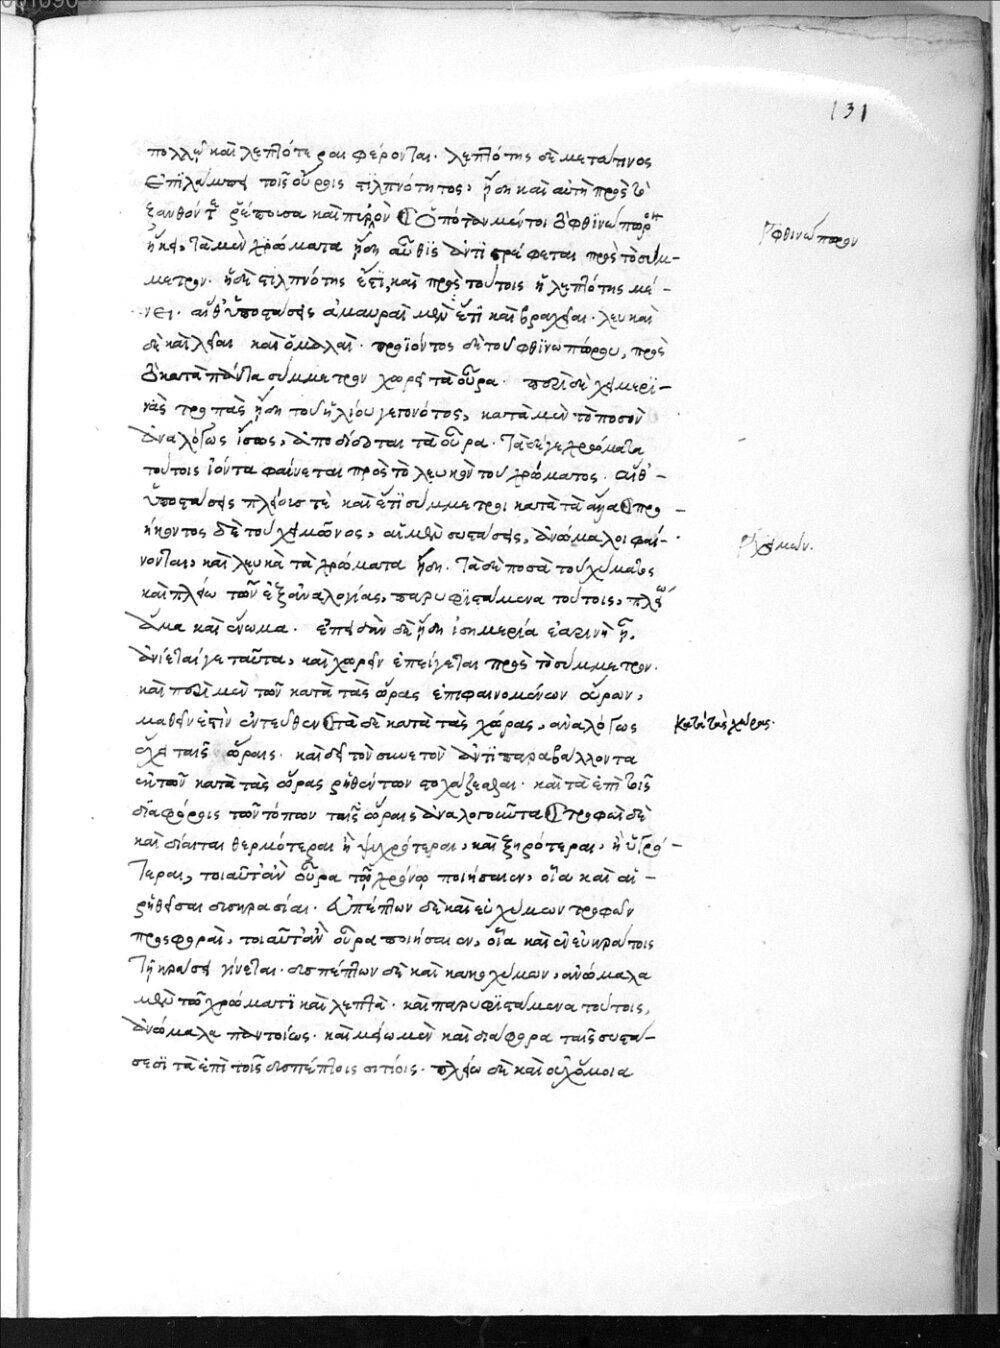 131
πολλῷ καὶ λεπτότεραι φέρονται. λεπτότης δὲ μετά τινος
ἐπιλάμπει τοῖς οὔροις στιλπνότητος, ἤδη καὶ αὐτὴ πρὸς τὸ
ξανθόν τε ῥέπουσα καὶ πικρὸν ὁπόταν μέντοι φθινόπωρον
φθινόπωρον
ἥκει, τὰ μὲν χρώματα ἤδη αὖθις ἀντιστρέφεται πρὸς τὸ σύμ-
μετρον. ἡ δὲ στιλπνότης ἔτι, καὶ πρὸς τούτοις ἡ λεπτότης μέ-
νει. αἵ θ' ὑποστάσεις ἀμαυραὶ μὲν ἔτι καὶ βραχεῖαι. λευκαὶ
δὲ καὶ λεῖαι καὶ ὁμαλαί. προϊόντος δὲ τοῦ φθινοπώρου, πρὸς
τὸ κατὰ πάντα σύμμετρον χωρεῖ τὰ οὖρα. περὶ δὲ χειμερι-
νὰς τροπὰς ἤδη τοῦ ἡλίου γεγονότος, κατὰ μὲν τὸ ποσὸν
ἀναλόγως ἴσως, ἀποδίδοται τὰ οὖρα. τὰ δέ γε χρώματα
τούτοις ἰόντα φαίνεται πρὸς τὸ λευκὸν τοῦ χρώματος. αἵ θ'
ὑποστάσεις πλείους τὲ καὶ ἔτι σύμμετροι κατὰ τὰ ἄνα προ-
ήκοντος δὲ τοῦ χειμῶνος, αἱ μὲν συστάσεις, ἀνώμαλοι φαί-
χειμών.
νονται, καὶ λευκὰ τὰ χρώματα ἤδη. τὰ δὲ ποσὰ τοῦ χύματος
καὶ πλείω τῶν ἐξ ἀναλογίας, παρυφιστάμενα τούτοις, πλείω
ἅμα καὶ ἔνωμα. ἐπειδὰν δὲ ἤδη ἰσημερία ἐαρινὴ ᾖ,
ἀνίεταί γε ταῦτα, καὶ χωρεῖν ἐπείγεται πρὸς τὸ σύμμετρον.
καὶ περὶ μὲν τῶν κατὰ τὰς ὥρας ἐπιφαινομένων οὔρων,
μαθεῖν ἐστὶν ἐντεῦθεν τὰ δὲ κατὰ τὰς χώρας, ἀναλόγως
κατὰ τὰς χώρας.
ἔχει ταῖς ὥραις. καὶ δεῖ τὸν συνετὸν ἀντιπαραβάλλοντα
ἐκ τῶν κατὰ τὰς ὥρας ῥηθέντων στοχάζεσθαι. καὶ τὰ ἐπὶ τοῖς
διαφόροις τῶν τόπων ταῖς ὥραις ἀναλογοῦντα τροφαὶ δὲ
καὶ δίαιται θερμότεραι ἢ ψυχρότεραι, καὶ ξηρότεραι, ἢ ὑγρό-
τεραι, τοιαῦτ' ἂν οὖρα τῷ χρόνῳ ποιήσαιεν, οἷα καὶ αἱ
ῥηθεῖσαι δυσκρασίαι. εὐπέπτων δὲ καὶ εὐχύμων τροφῶν
προσφοραὶ, τοιαῦτ' ἂν οὖρα ποιήσαιεν, οἷα καὶ ἐν εὐκράτοις
τῇ κράσει γίνεται. δυσπέπτων δὲ καὶ κακοχύμων, ἀνώμαλα
μὲν τῷ χρώματι καὶ λεπτά. καὶ παρυφιστάμενα τούτοις,
ἀνώμαλα παντοίως. καὶ μείω μὲν καὶ διάφορα ταῖς συστά-
σεσι τὰ ἐπὶ τοῖς δυσπέπτοις σιτίοις. πλείω δὲ καὶ ἀνόμοια